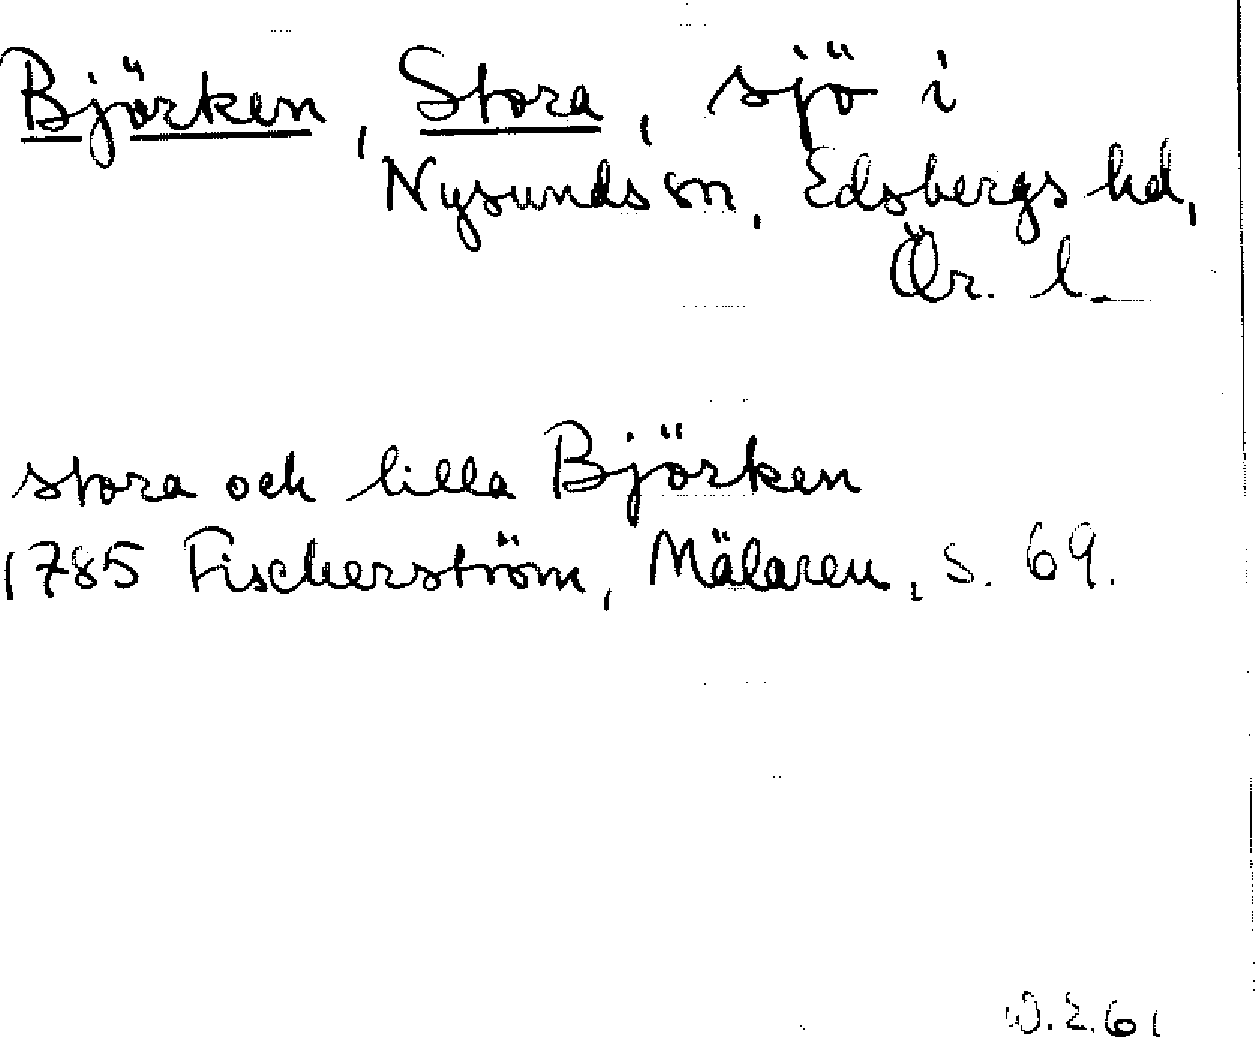 Björken, Stora, sjö i
Nysunds sn, Edsbergs hd,
Ör. l.
stora och lilla Björken
1785 Fischerström, Mälaren, s. 69.